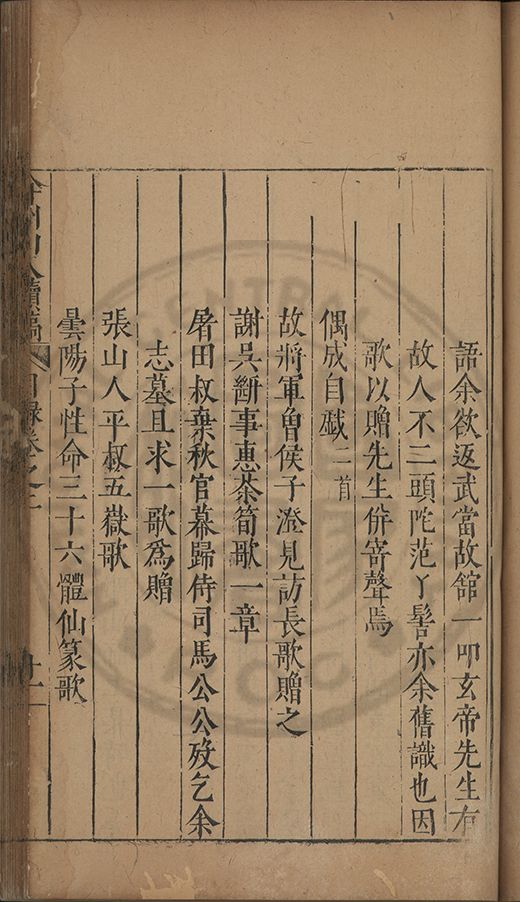 語余欲返武當故舘一叩玄帝先生有
故人不二頭陀范丫髻亦余舊識也因
歌以贈先生併寄聲焉
偶成自戲二首
故將軍魯侯子澄見訪長歌贈之
謝吳斷事惠茶筍歌一章
屠田叔棄秋官幕歸侍司馬公公歿乞余
志墓且求一歌爲贈
張山人平叔五嶽歌
曇陽子性命三十六體仙篆歌
弇州山人續稿 目錄卷之二